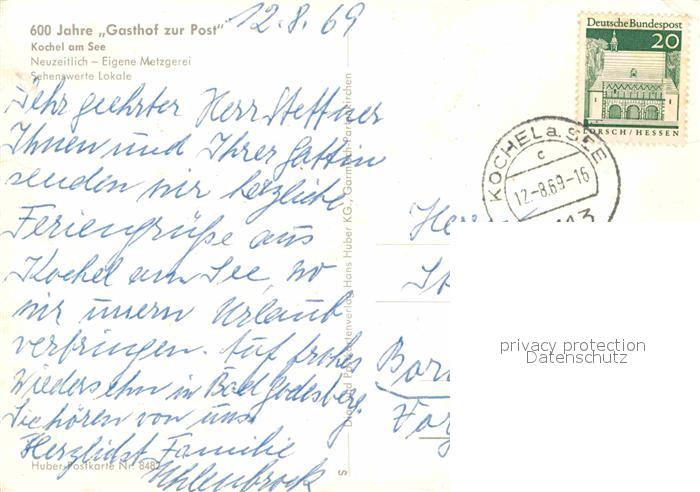 12.8.69
600 Jahre „Gasthof zur Post"
Kochel am See
Neuzeitlich – Eigene Metzgerei
Sehenswerte Lokale
Sehr geehrter Herr Steffner
Ihnen und Ihrer Gattin
senden wir herzliche
Feriengrüße aus
Kochel am See, wo
wir unsern Urlaub
verbringen. Auf frohes
Wiedersehn in Bad Godesberg.
Sie hören von uns
Herzlichst Familie
Uhlenbrock
Huber-Postkarte Nr. 848
Hans Huber KG., Garmisch-Partenkirchen
S
Deutsche Bundespost
20
LORSCH/HESSEN
KOCHEL a. SEE
c
12.-8.69-16
privacy protection
Datenschutz